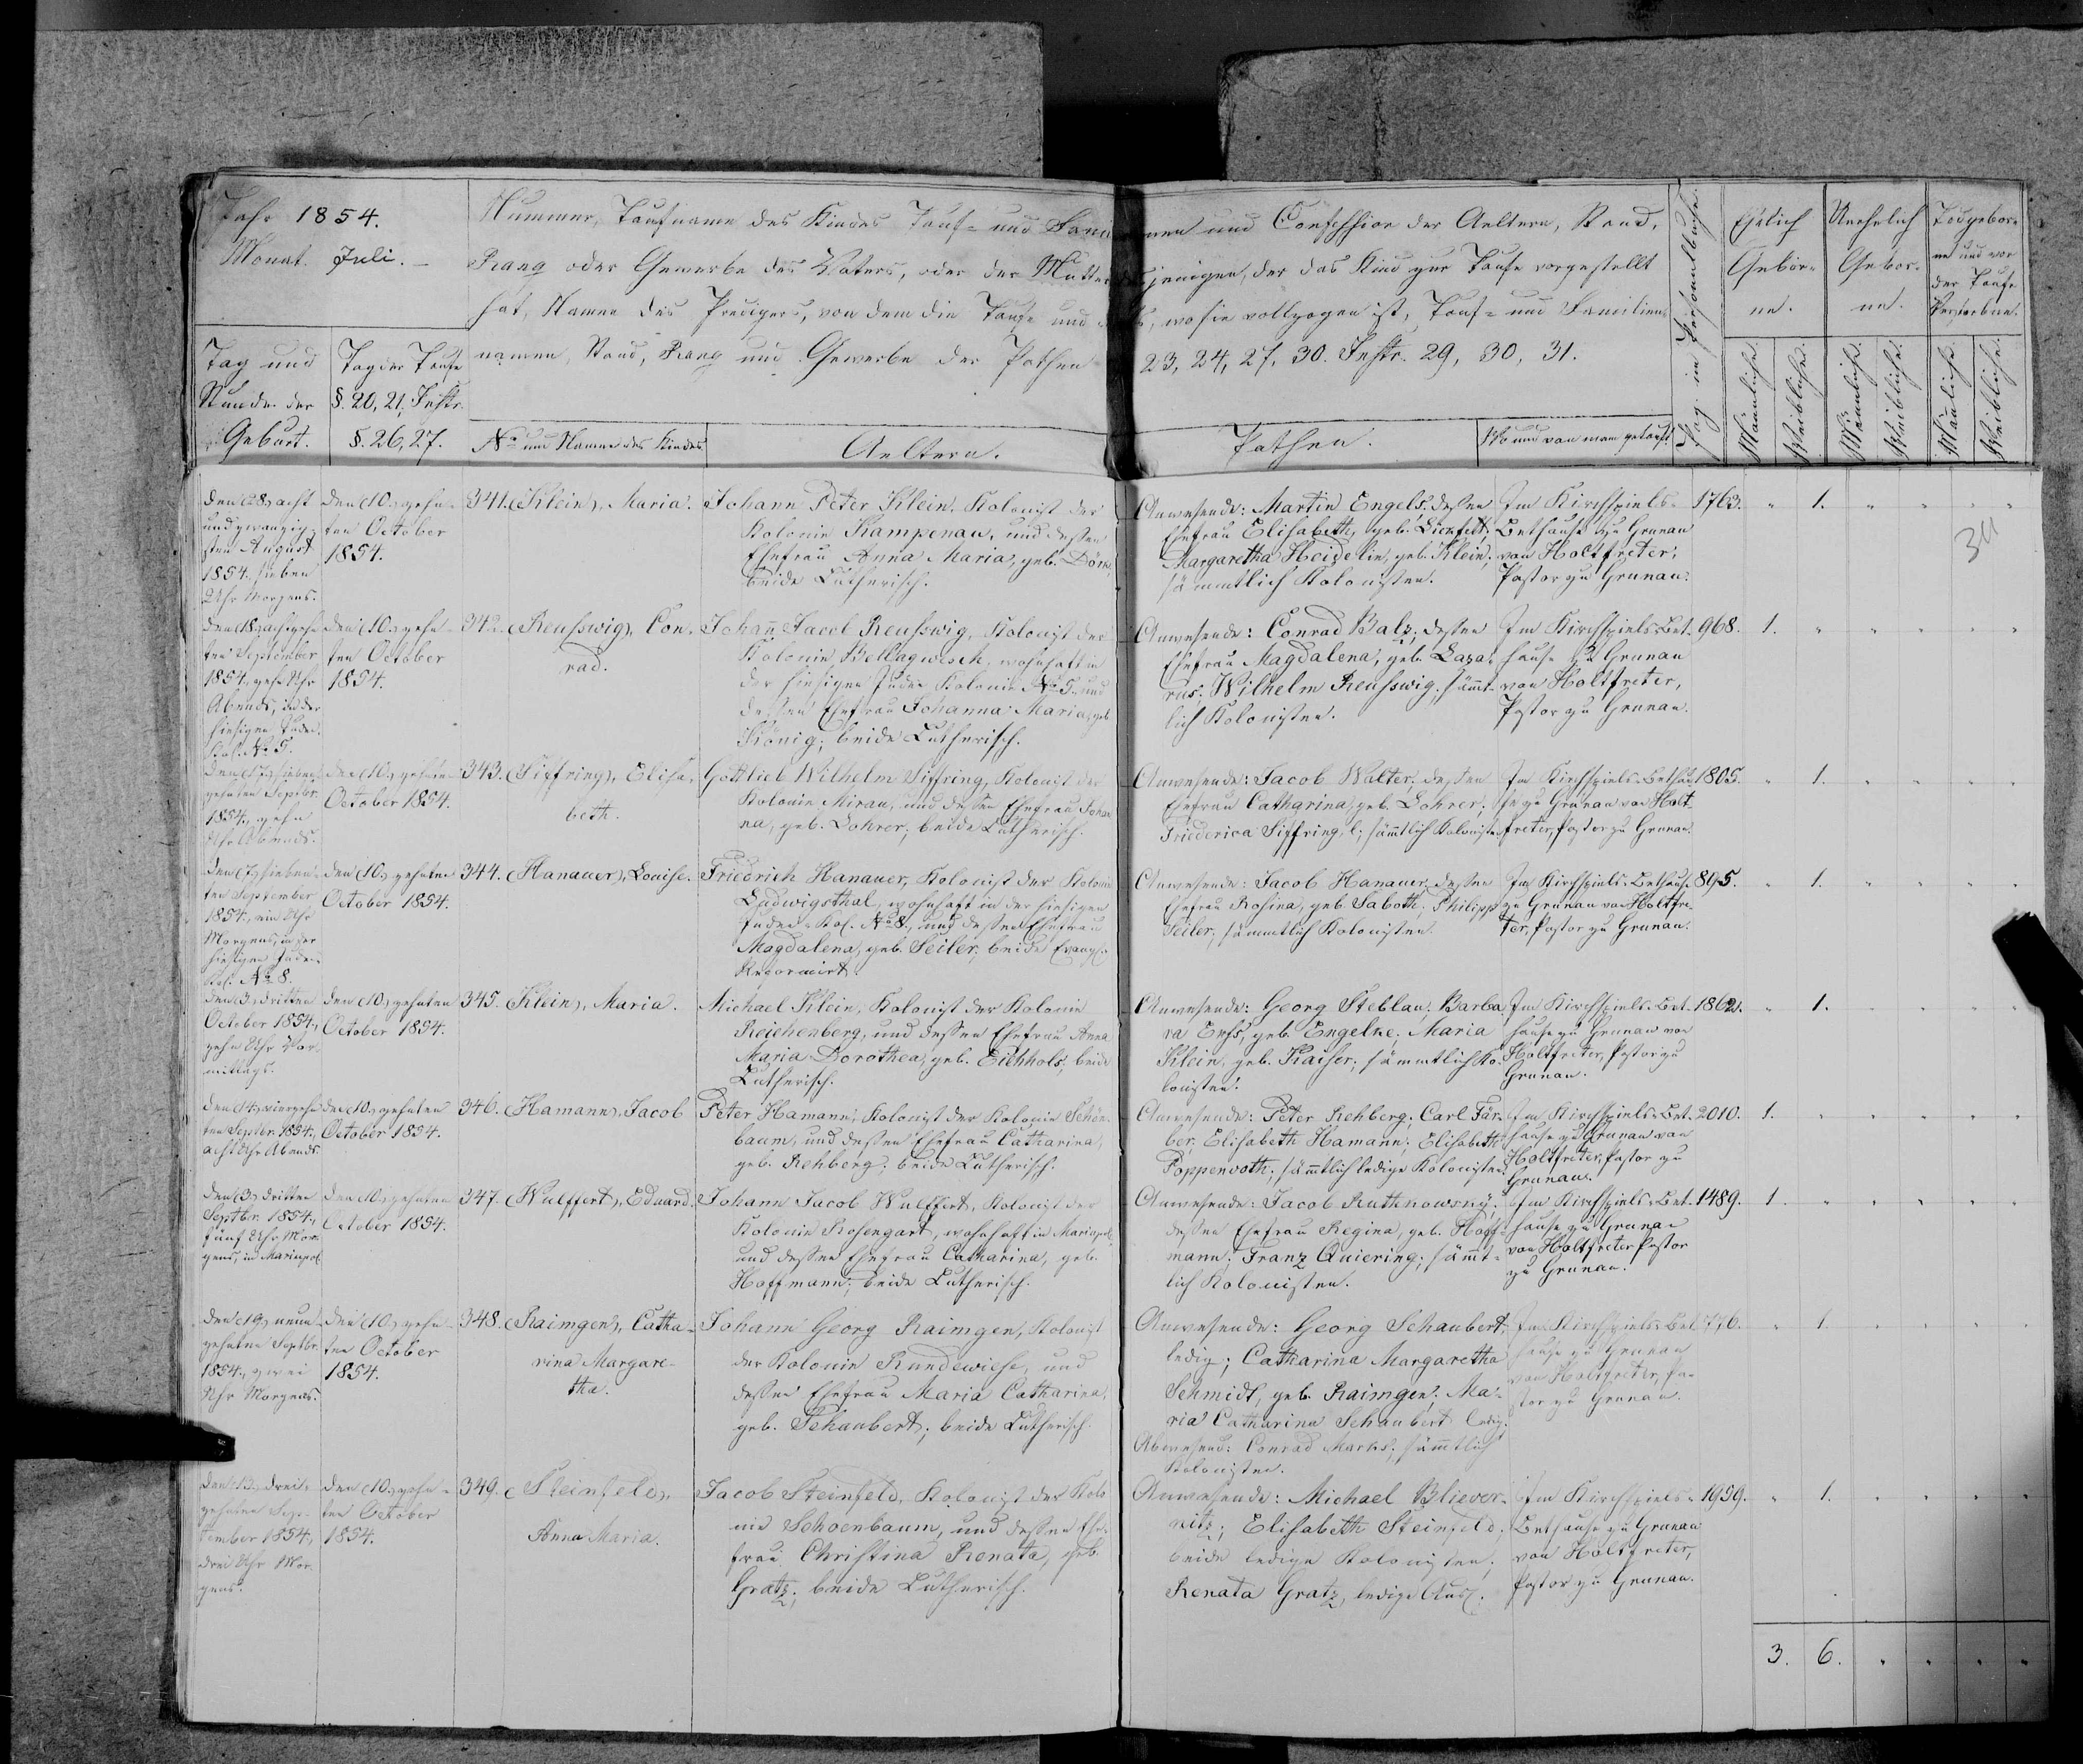 Jahr 1854.
Monat. Juli. –
Nummer, Taufname des Kindes Tauf- und Fami
Rang oder Gewerbe des Vaters, oder der Mutter
hat, Namen des Predigers, von dem die Taufe und
namen, Stand, Rang und Gewerbe der Pathen
Tag und
Stunde der
Geburt.
Tag der Taufe
§. 20, 21, Instr.
§. 26, 27.
No und Name des Kindes
Aeltern.
men und Confession der Aeltern, Stand,
jenigen, der das Kind zur Taufe vorgestellt
wo sie vollzogen ist, Tauf- und Familien
23, 24, 27, 30. Instr. 29, 30, 31.
Pathen.
Wo und von wem getauft
Pag. im Personalbuche.
Ehelich
Gebor-
ne.
Unehelich
Gebor-
ne.
Todgebor-
ne und vor
der Taufe
Verstorbene.
Männliche.
Weibliche.
Männliche.
Weibliche.
Männliche.
Weibliche.
den (28) acht
und zwanzig-
sten August
1854, sieben
Uhr Morgens.
den (10.) zehn-
ten October
1854.
341. (Klein), Maria.
Johann Peter Klein, Kolonist der
Kolonie Kampenau, und dessen
Ehefrau Anna Maria, geb. Dörk,
beide Lutherisch.
Anwesende: Martin Engels; dessen
Ehefrau Elisabeth, geb. Lickfett;
Margaretha Heidelin, geb. Klein;
sämmtlich Kolonisten.
Im Kirchspiels-
Bethause zu Grunau
von Holtfreter,
Pastor zu Grunau.
1763. " 1. " " " "
den (18) achtzehn
ten September
1854, zehn Uhr
Abends, in der
hiesigen Juden
Kol. No 5.
den (10.) zehn-
ten October
1854.
342. (Reusswig), Con-
rad.
Johann Jacob Reusswig, Kolonist der
Kolonie Bellagwesch, wohnhaft in
der hiesigen Juden Kolonie No 5. und
dessen Ehefrau Johanna Maria, geb
König; beide Lutherisch.
Anwesende: Conrad Balz; dessen
Ehefrau Magdalena, geb. Laza-
rus; Wilhelm Reusswig; sämmt-
lich Kolonisten.
Im Kirchspiels-Bet-
hause zu Grunau
von Holtfreter,
Pastor zu Grunau.
968. 1. " " " " "
den (17) sieben-
zehnten Septbr.
1854, zehn
Uhr Abends.
den (10.) zehnten
October 1854.
343. (Siffring), Elisa-
beth.
Gottlieb Wilhelm Siffring, Kolonist der
Kolonie Mirau, und dessen Ehefrau Johan
na, geb. Lohrer, beide Lutherisch.
Anwesende: Jacob Walter; dessen
Ehefrau Catharina, geb. Lohrer;
Friederica Siffring, l; sämtlich Kolonisten
Im Kirchspiels-Bethau
se zu Grunau von Holt-
freter, Pastor zu Grunau.
1805. " 1. " " " "
den (7) sieben-
ten September
1854, ein Uhr
Morgens, in der
hiesigen Juden-
Kol. No 8.
den (10.) zehnten
October 1854.
344. (Hanauer), Louise.
Friedrich Hanauer, Kolonist der Kolonie
Ludwigsthal, wohnhaft in der hiesigen
Juden-Kol. No 8., und dessen Ehefrau
Magdalena, geb. Seiler, beide Evangl.-
Reformirt.
Anwesende: Jacob Hanauer; dessen
Ehefrau Rosina, geb. Saboth; Philipp
Seiler; sämmtlich Kolonisten.
Im Kirchspiels-Bethause
zu Grunau von Holtfre-
ter, Pastor zu Grunau.
895. " 1. " " " "
den (3) dritten
October 1854,
zehn Uhr Vor-
mittags.
den (10.) zehnten
October 1854.
345. (Klein), Maria.
Michael Klein, Kolonist der Kolonie
Reichenberg, und dessen Ehefrau Anna
Maria Dorothea, geb. Eichhols; beide
Lutherisch.
Anwesende: Georg Steblau; Barba
ra Enss, geb. Engelke; Maria
Klein, geb. Kaiser; sämmtlich Ko-
lonisten.
Im Kirchspiels-Bet-
hause zu Grunau von
Holtfreter, Pastor zu
Grunau.
1862. " 1. " " " "
den (14) vierzehn
ten Septbr. 1854,
acht Uhr Abends.
den (10.) zehnten
October 1854.
346. (Hamann), Jacob
Peter Hamann, Kolonist der Kolonie Schön-
baum, und dessen Ehefrau Catharina,
geb. Rehberg; beide Lutherisch.
Anwesende: Peter Rehberg; Carl Fär-
ber; Elisabeth Hamann; Elisabeth
Poppenroth; sämtlich ledige Kolonisten.
Im Kirchspiels-Bet-
hause zu Grunau von
Holtfreter, Pastor zu
Grunau.
2010. 1. " " " " "
den (3) dritten
Septbr. 1854,
fünf Uhr Mor-
gens, in Mariupol
den (10.) zehnten
October 1854.
347. (Wulffert), Eduard.
Johann Jacob Wulffert, Kolonist der
Kolonie Rosengart, wohnhaft in Mariupol
und dessen Ehefrau Catharina, geb.
Hoffmann; beide Lutherisch.
Anwesende: Jacob Ruthnowsky;
dessen Ehefrau Regina, geb. Hoff-
mann; Franz Quiering; sämmt-
lich Kolonisten.
Im Kirchspiels-Bet-
hause zu Grunau
von Holtfreter Pastor
zu Grunau.
1489. 1. " " " " "
den (19) neun-
zehnten Septbr.
1854, zwei
Uhr Morgens.
den (10.) zehn-
ten October
1854.
348. (Raimgen), Catha-
rina Margare-
tha.
Johann Georg Raimgen, Kolonist
der Kolonie Rundewiese, und
dessen Ehefrau Maria Catharina,
geb. Schaubert; beide Lutherisch.
Anwesende: Georg Schaubert,
ledig; Catharina Margaretha
Schmidt, geb. Raimgen; Ma-
ria Catharina Schaubert ledig.
Abwesend: Conrad Marks; sämtlich
Kolonisten.
Im Kirchspiels-Bet-
hause zu Grunau
von Holtfreter, Pa-
stor zu Grunau.
776. " 1. " " " "
den (13) drei-
zehnten Sep-
tember 1854,
drei Uhr Mor-
gens.
den (10.) zehn-
ten October
1854.
349. (Steinfeld),
Anna Maria.
Jacob Steinfeld, Kolonist der Kolo
nie Schoenbaum, und dessen Ehe-
frau Christina Renata, geb.
Gratz; beide Lutherisch.
Anwesende: Michael Bliever-
nitz; Elisabeth Steinfeld;
beide ledige Kolonisten;
Renata Gratz, ledige Ausl.
Im Kirchspiels-
Bethause zu Grunau
von Holtfreter,
Pastor zu Grunau.
1959. " 1. " " " "
3. 6. " " " "